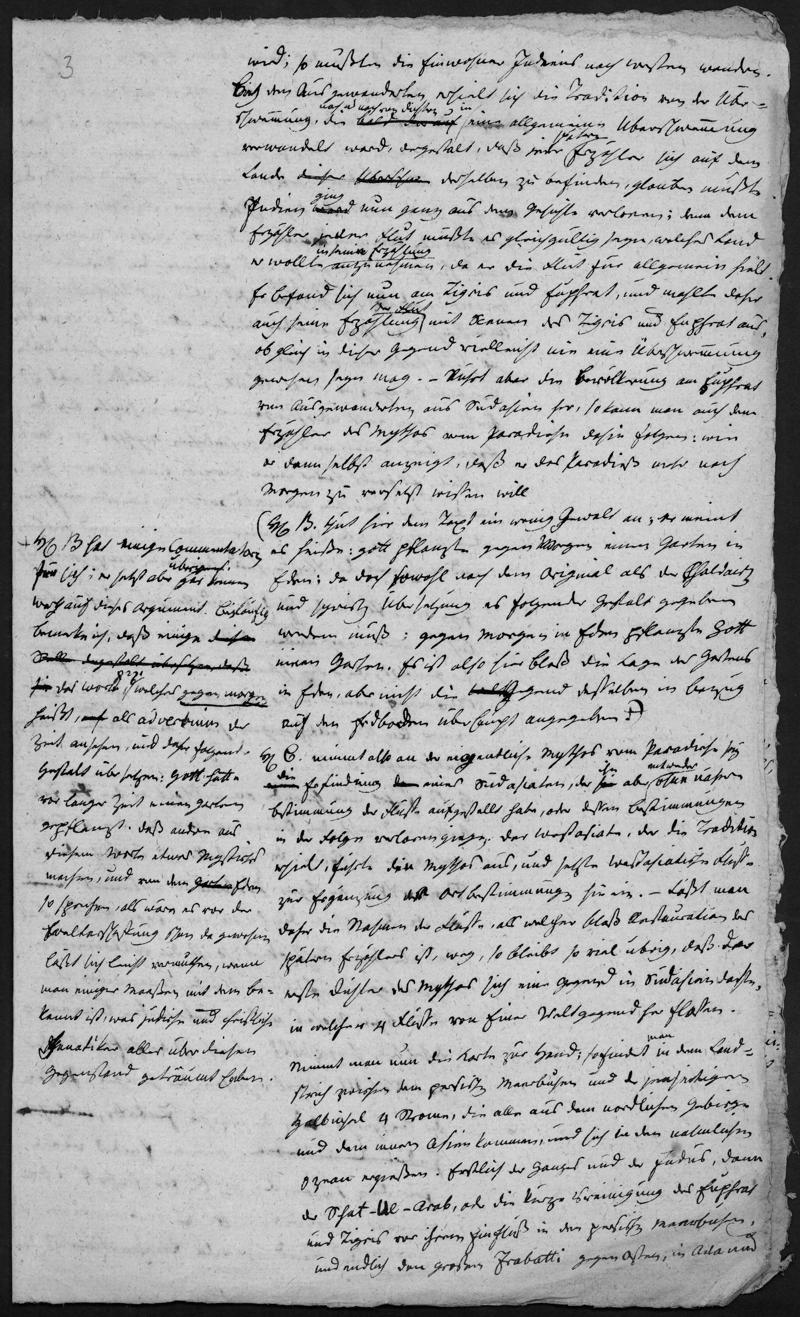 3
wird; so mußten die Einwohner Indiens nach westen wandern.
Bei den Ausgewanderten erhielt sich die Tradition von der Über-
nach u nach von Dichtern in
schwemmung, die bald darauf eine allgemeine Überschwemmung
verwandelt ward, dergestalt, daß jeder Erzähler sich auf dem
spätere
Lande dieser Überschw derselben zu befinden, glauben mußte.
ging
Indien ward nun ganz aus dem Gesichte verloren; denn dem
Erzähler jener Flut mußte es gleichgültig seyn, welches Land
in seine Erzählung
er wollte anzunehmen, da er die Flut für allgemein hielt.
Er befand sich nun am Tigris und Euphrat, und mahlte daher
der Flut
auch seine Erzählung mit Namen des Tigris und Euphrat aus,
obgleich in dieser Gegend vielleicht nie eine Überschwemmung
gewesen seyn mag. – Rührt aber die Bevölkerung am Euphrat
von Ausgewanderten aus Südasien her, so kann man auch dem
Erzähler des Mythos vom Paradiese dahin folgen: wie
er denn selbst anzeigt, daß er das Paradies mehr nach
Morgen zu versetzt wissen will
(H B. thut hier dem Text ein wenig Gewalt an; er meint
es heiße: Gott pflanzte gegen Morgen einen Garten in
Eden; da doch sowohl nach dem Original als der Chaldäi
und syrisch Übersetzung es folgender Gestalt gegeben
werden muß: gegen Morgen in Eden pflanzte Gott
einen Garten. Es ist also hier bloß die Lage des Gartens
in Eden, aber nicht die Gegend desselben in bezug
auf den Erdboden überhaupt angegeben +)
+ H B hat einige Commentatoren
für sich; er setzt aber gar keinen
überhaupt
werth auf dieses Argument. Beiläufig
bemerke ich, daß einige diese
Stelle dergestalt übersetzen, daß
sie das wort welches gegen morgen
heißt, auf als adverbium der
Zeit ansehen, und daher folgender-
gestalt übersetzen: Gott hatte
vor langer Zeit einen Garten
gepflanzt. daß andere aus
diesem Worte etwas Mystisches
machen, und von dem Garten Eden
so sprechen, als wäre es vor der
Weltschöpfung schon da gewesen
läßt sich leicht vermuthen, wenn
man einiger Maaßen mit dem be-
kannt ist, was jüdische und christliche
Phanatiker alles über diesen
Gegenstand geträumt haben.
H B. nimmt also an der eigentliche Mythos vom Paradiese sey
die Erfindung eines Südasiaten, der ihn aber entweder ohne nähere
bestimmung der Flüsse aufgestellt habe, oder dessen Bestimmungen
in der Folge verloren gingen. Der westasiate, der die Tradition
erhielt, führte den Mythos aus, und setzte westasiatische Flüsse
zur Ergänzung der Ortbestimmungen hinein. – Läßt man
daher die Nahmen der Flüsse, als welcher bloß Restauration des
spätern Erzählers ist, weg, so bleibt so viel übrig, daß der
erste Dichter des Mythos sich eine Gegend in Südasien dachte,
in welcher 4 Flüsse von Einer Weltgegend her flossen.
Nimmt man nun die Karte zur Hand; so findet man in dem Land-
strich zwischen dem persisch Meerbusen und der jenseitigen
Halbinsel 4 Ströme, die alle aus dem nordlichen Gebirge
und dem innern Asien kommen, und sich in den nehmlichen
Ozean ergießen. Erstlich der Ganges und der Indus, dann
der Schat-Ul-Arab, oder die kurze Vereinigung des Euphrat
und Tigris vor ihrem Einfluß in den persisch Meerbusen,
und endlich den großen Irabatti gegen Osten, in Ava und